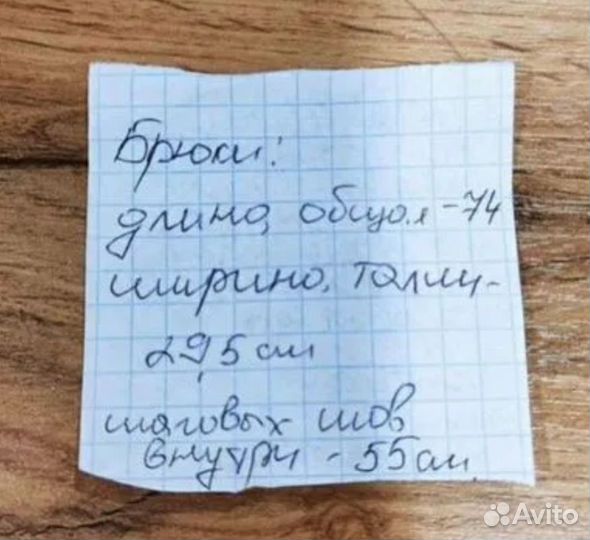 Брюки:
длина общая - 74
ширина талии -
29,5 см
шаговых шов
внутри - 55 см
Avito